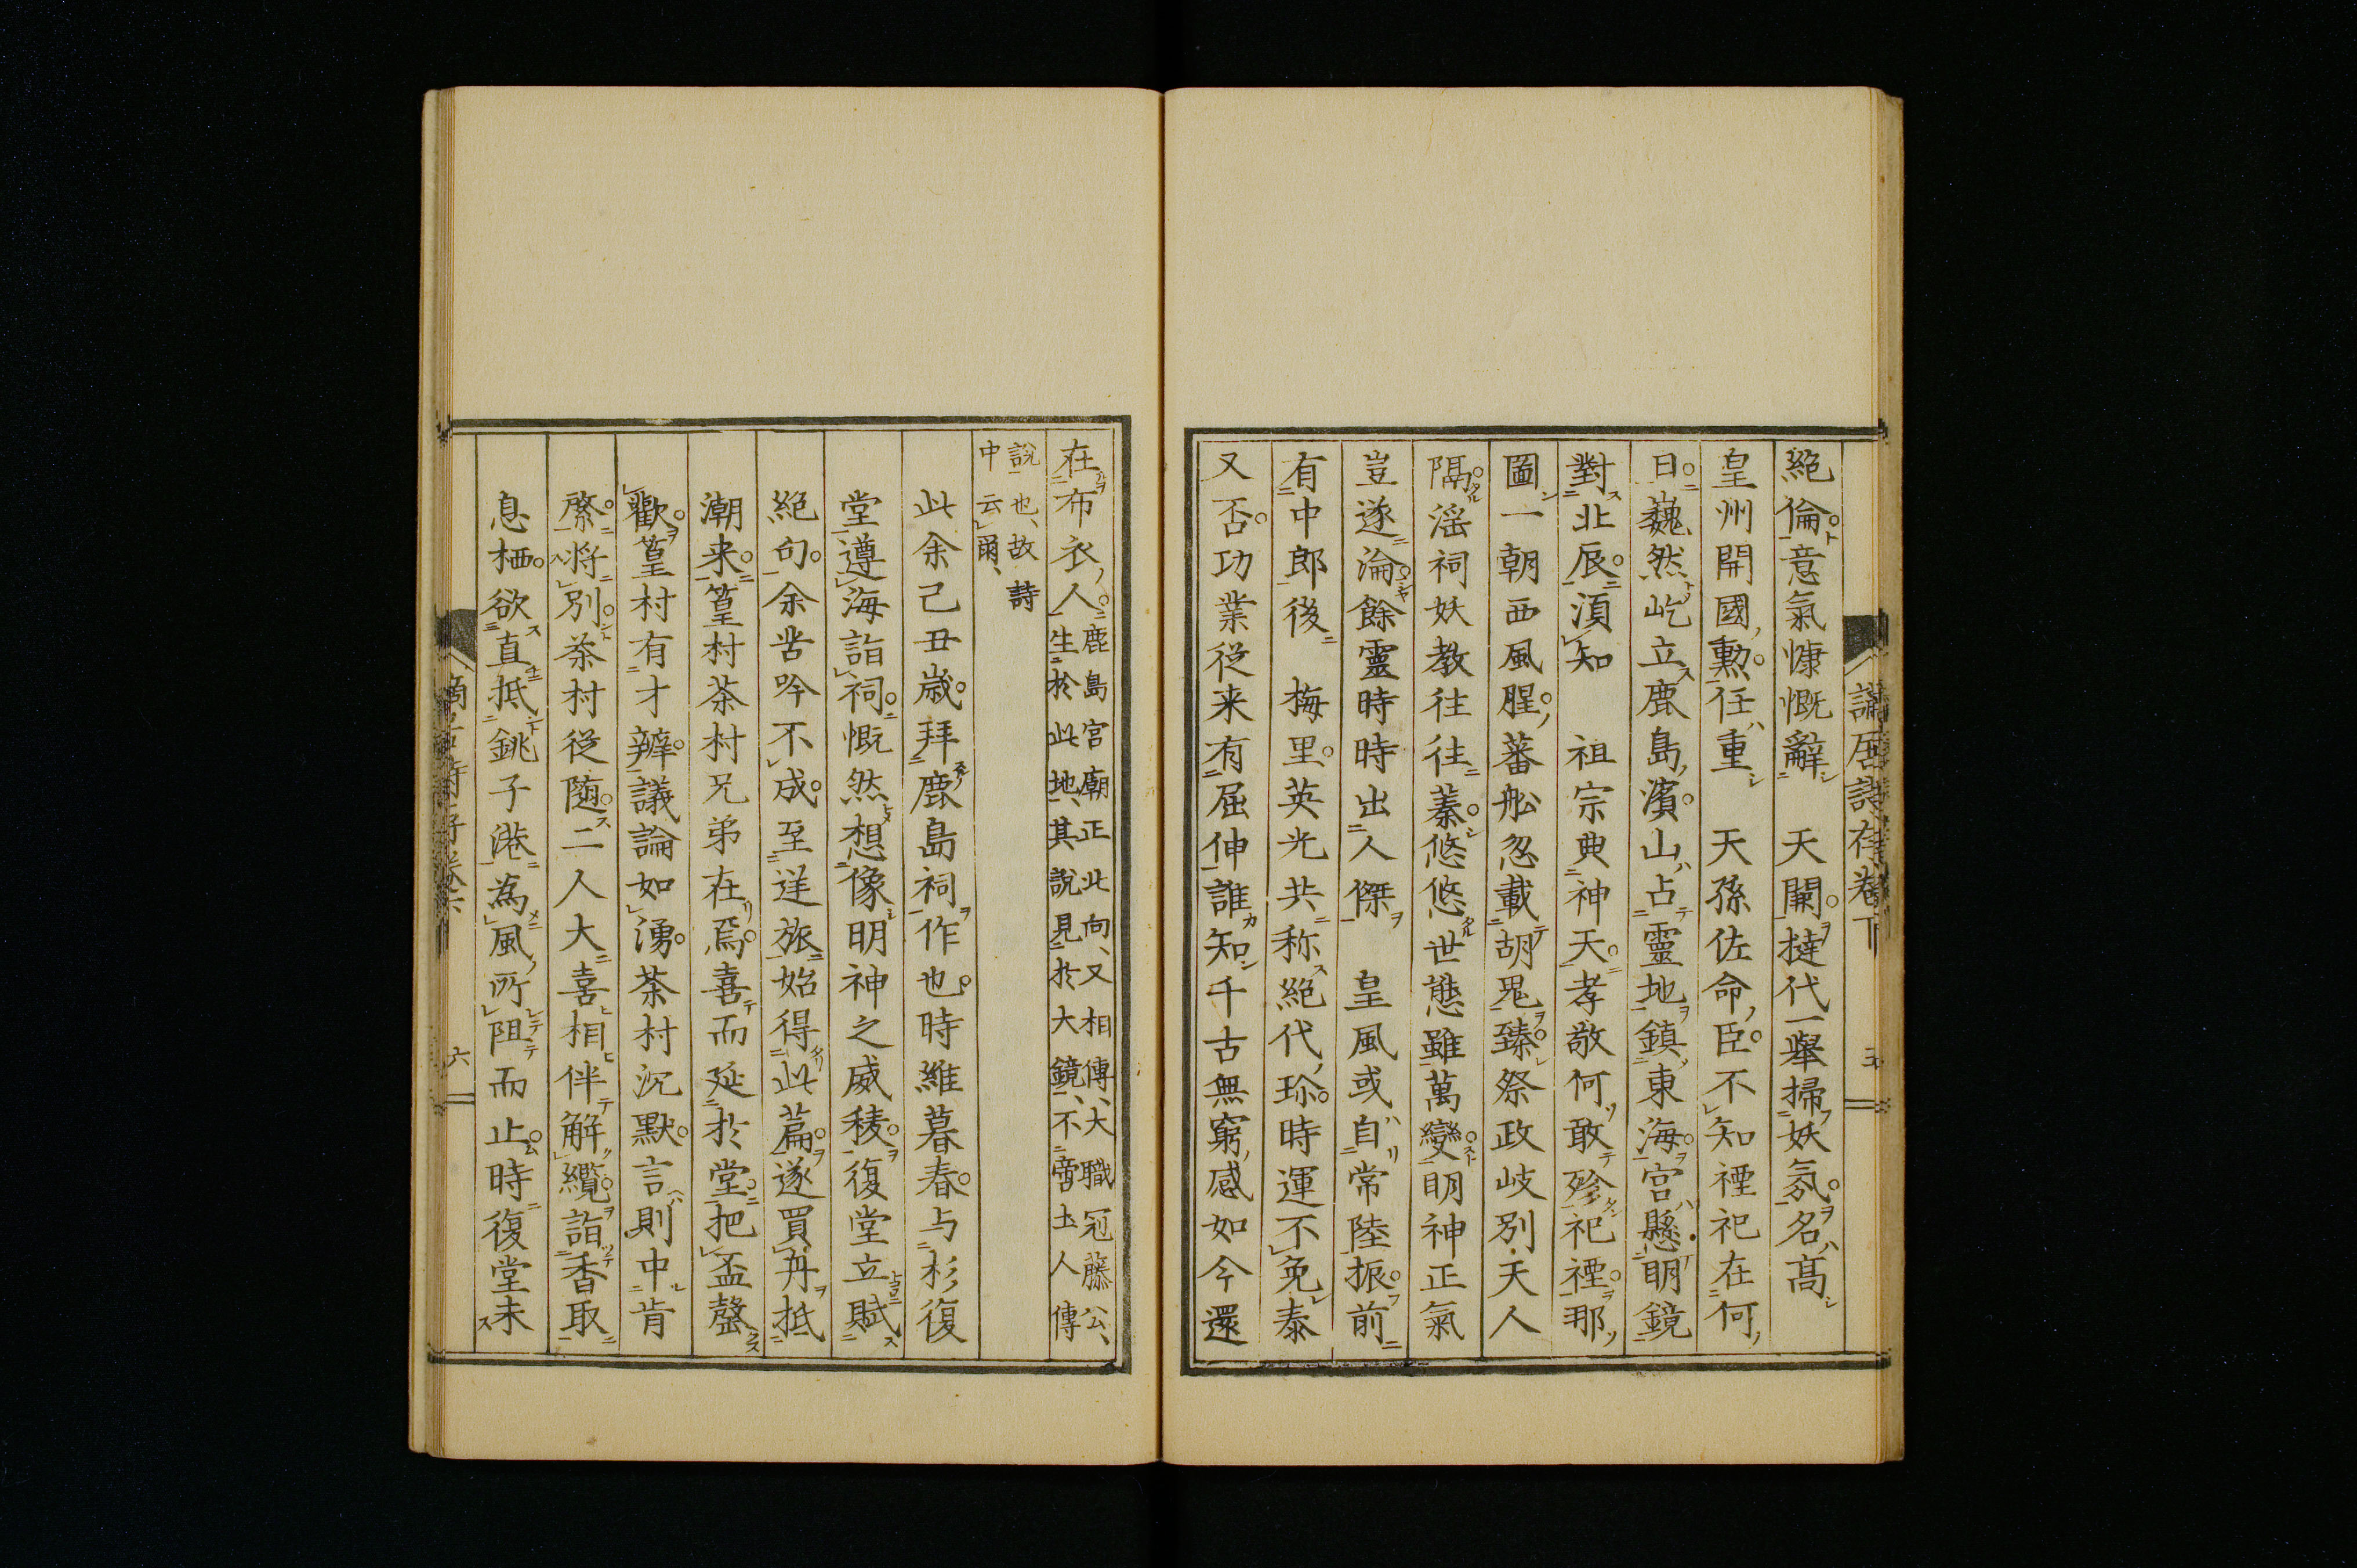 絶倫意氣慷慨辭 天閽撻伐一擧掃妖氛名高
皇州開國勲任重 天孫佐命臣不知禋祀在何
日巍然屹立鹿島濱山占靈地鎮東海宮懸明鏡
對北辰須知 祖宗典神天孝敬何敢殄祀禋那
圖一朝西風腥蕃舩忽載胡鬼臻祭政岐別天人
隔滛祠妖教往往蓁悠悠世態雖萬變明神正氣
豈遂淪餘靈時時出人傑 皇風或自常陸振前
有中郎後 梅里英光共称絶代珎時運不免泰
又否功業從来有屈伸誰知千古無窮感如今還
在布衣人
鹿島宮廟正北向、又相傳、大職冠藤公、
生於此地、其說見於大鏡、不啻土人傳
說也、故詩
中云爾、
此余己丑歳拜鹿島祠作也時維暮春与杉復
堂遵海詣祠慨然想像明神之威稜復堂立賦
絶句余苦吟不成至逆旅始得此篇遂買舟抵
潮来篁村茶村兄弟在焉喜而延於堂把盃罄
歡篁村有才辨議論如湧茶村沉默言則中肯
綮將別茶村從随二人大喜相伴解纜詣香取
息栖欲直抵銚子港為風所阻而止時復堂未
六